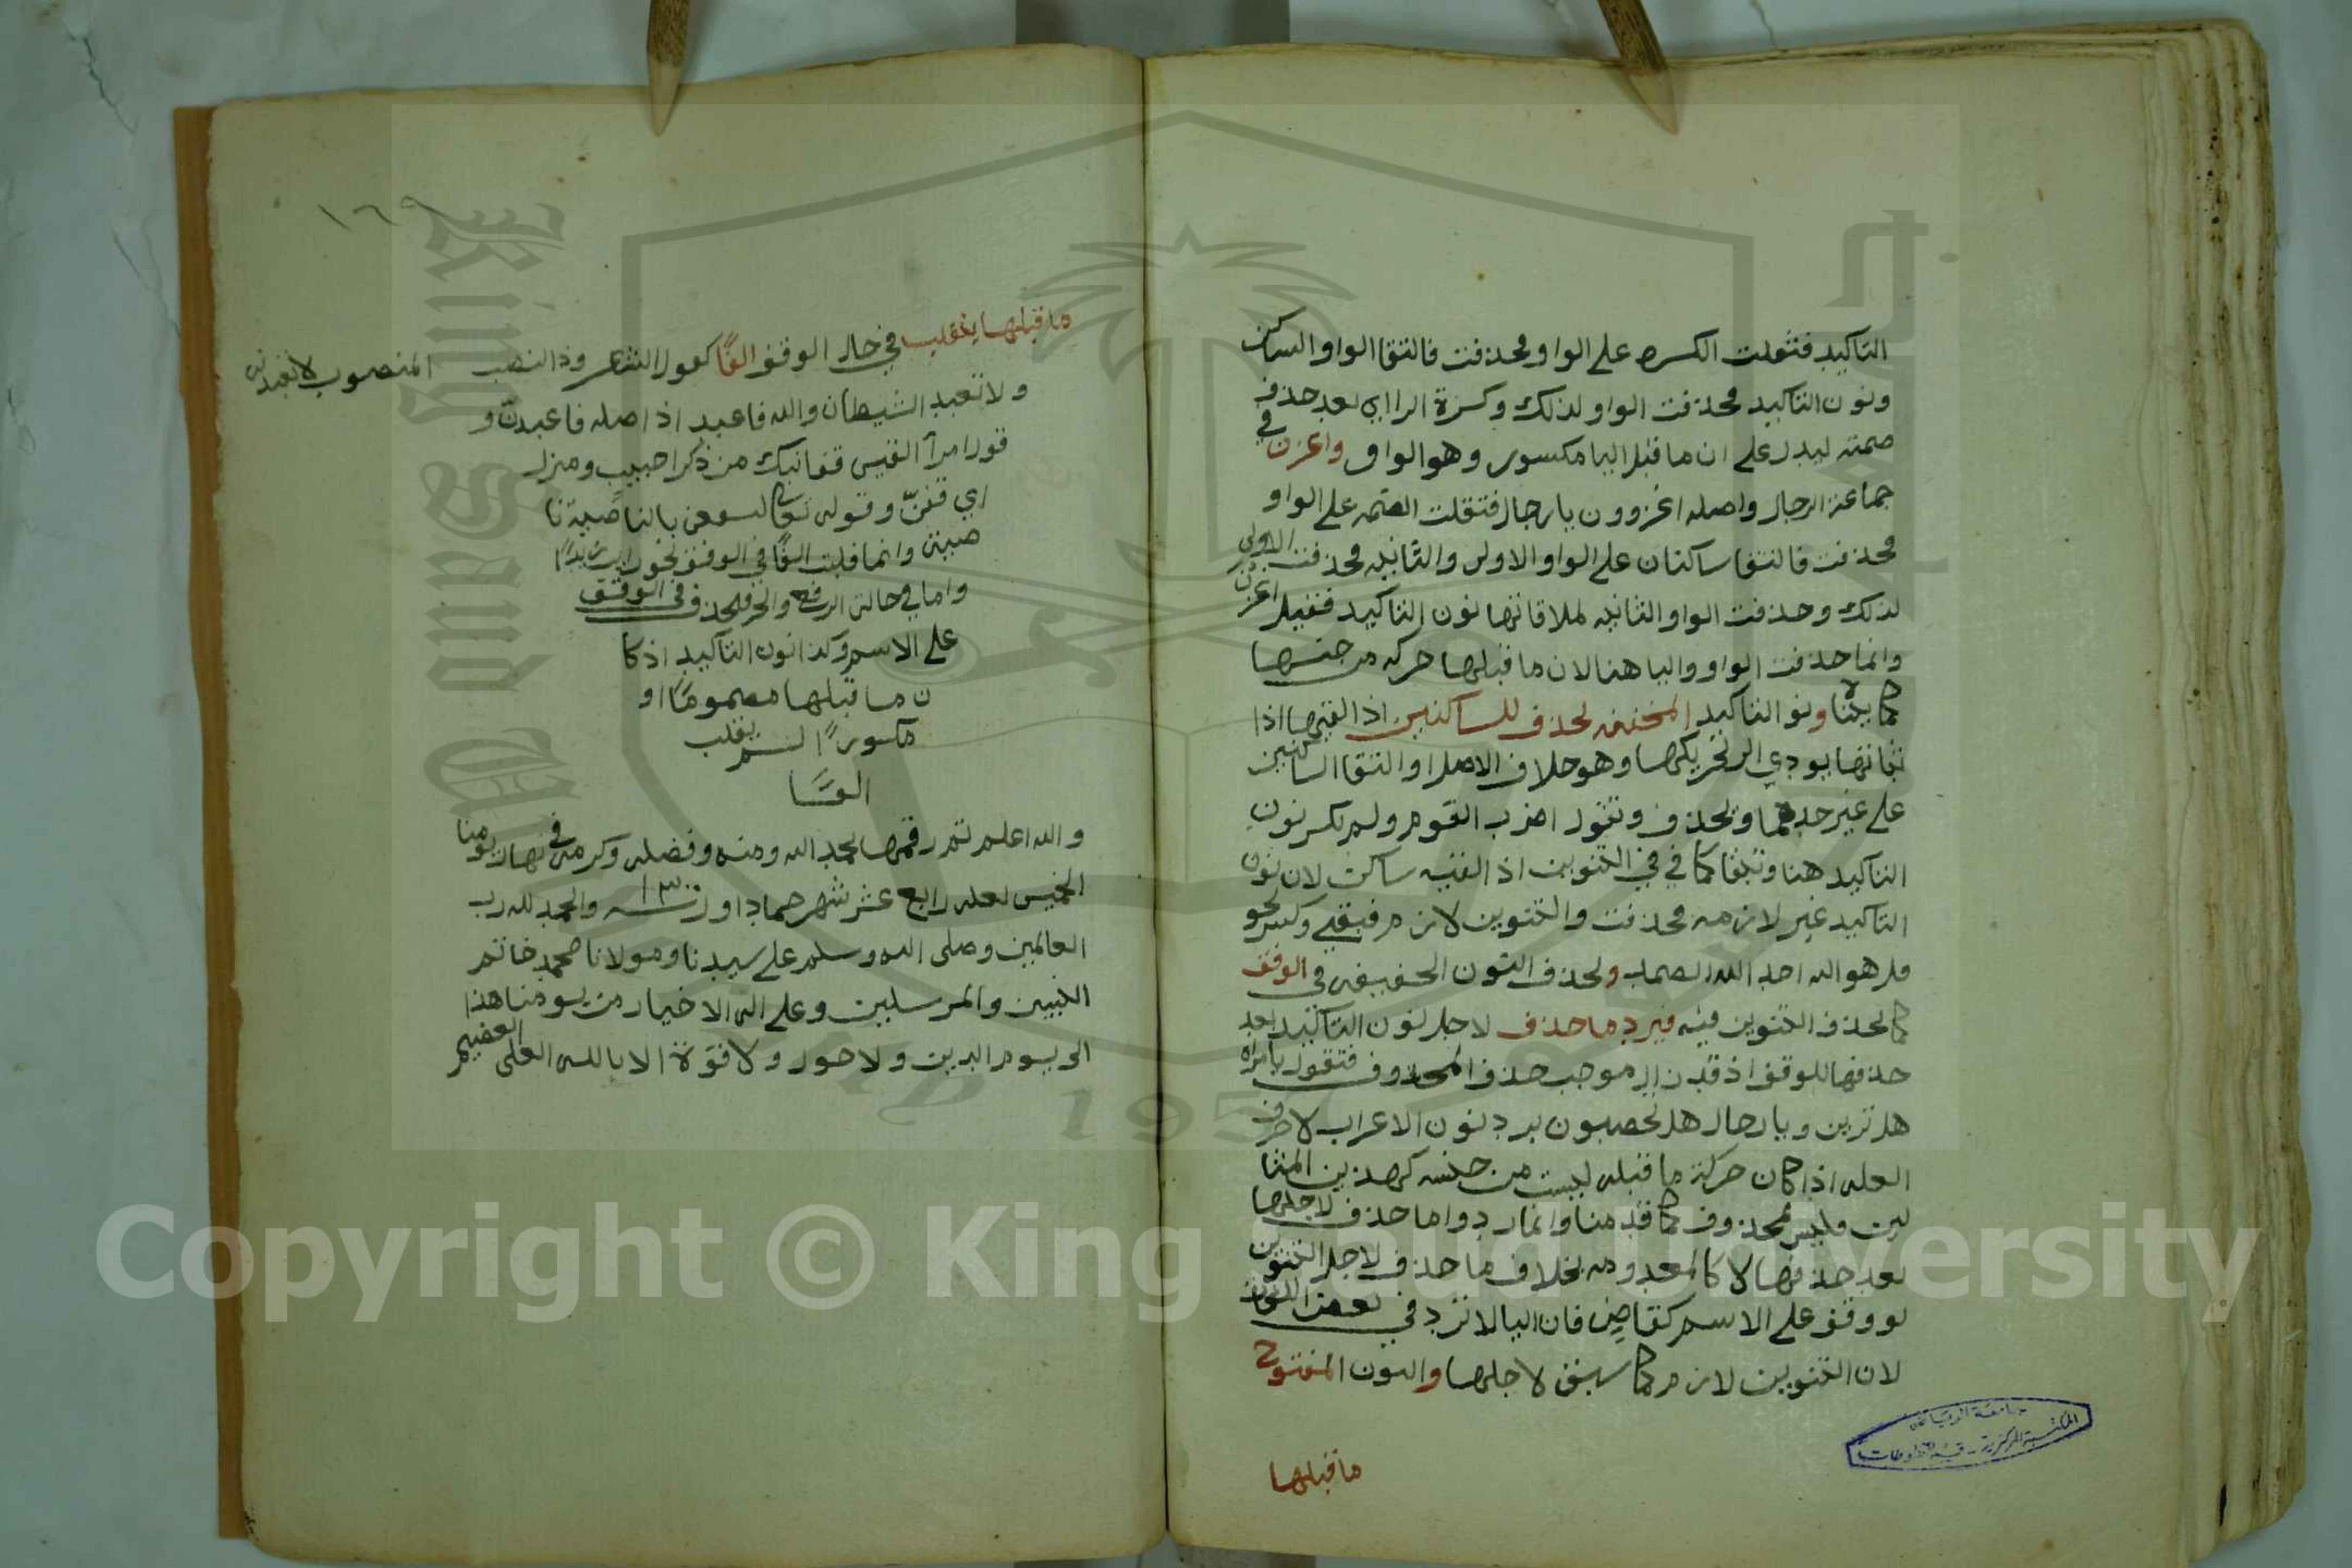 التاكيد فثقلت الكسره على الواو فحذفت فالتقا الواو الساكن
ونون التاكيد فحذفت الواو لذلك وكسرة الزاي بعد حذف
ضمته ليدل على ان ما قبل اليا مكسور وهو الواو واغزن في
جماعة الرجال واصله اغزوون يا رجال فثقلت الضمه على الواو
فحذفت فالتقا ساكنان على الواو الاولى والثانيه فحذفت الاولى
لذلك وحذفت الواو الثانيه لملاقاتها نون التاكيد فقيل اغزن
وانما حذفت الواو واليا هنا لان ما قبلها حركه من جنسها
كما بينا ونو التاكيد المخففه تحذف للساكنين اذا لقيها اذا
ثباتها يودي الى تحريكها وهو خلاف الاصل او التقا الساكنين
على غير حدهما وتحذف وتقول اضرب القوم ولم تكسر نون
التاكيد هنا وتبقا كما في التنوين اذا لقيه ساكن لان نون
التاكيد غير لازمه فحذفت والتنوين لازم فبقي وكسر نحو
قل هو الله احد الله الصمد وتحذف النون الخفيفه في الوقف
كما تحذف التنوين فيه فيرد ما حذف لاجل نون التاكيد بعد
حذفها للوقف اذ قد زال موجب حذف المحذوف فتقول يا امراه
هل ترين ويا رجال هل تحصبون برد نون الاعراب لا حرف
العله اذا كان حركة ما قبله ليست من جنسه كهذين المثا
لين وليس بمحذوف كما قدمنا وانما ردوا ما حذف لاجلها
بعد حذفها لا كالمعدومه بخلاف ما حذف لاجل التنوين
لو وقف على الاسم كقاض فان اليا لا ترد في بعض اللغات
لان التنوين لازم كما سبق لاجلها والنون المفتوح
ما قبلها
جامعة الرياض
المكتبة المركزية - قسم المخطوطات
١٦٩
ما قبلها ينقلب في حال الوقف الفا كقول الشاعر وذا النصب المنصوب لا تعبدنه
ولا تعبد الشيطان والله فاعبد اذ اصله فاعبدنّ و
قول امرآ القيس قفا نبك من ذكرا حبيب ومنزل
اي قفنّ وقوله تعالى لنسفعن بالناصية نا
صية وانما قلبت الفا في الوقف نحو رايت زيدا
واما في حالة الرفع والجر فتحذف في الوقف
على الاسم وكذا نون التاكيد اذ كا
ن ما قبلها مضموما او
مكسورا لم ينقلب
الفا
والله اعلم تم رقمها بحمد الله ومنه وفضله وكرمه في نهار يومنا
الخميس لعله رابع عشر شهر جماد اول سنة ١٣٠٠ والحمد لله رب
العالمين وصلى الله وسلم على سيدنا ومولانا محمد خاتم
النبيين والمرسلين وعلى اله الاخيار من يومنا هذا
الى يوم الدين ولا حول ولا قوة الا بالله العلى العضيم
Copyright © King Saud University
King Saud University
1957